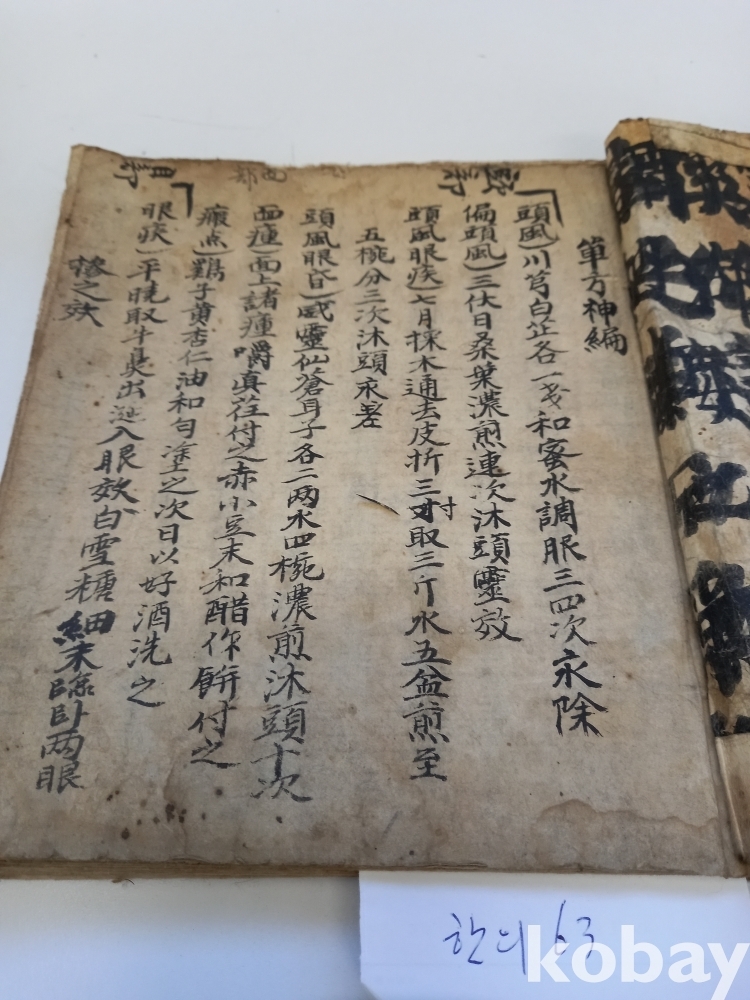 頭部
面部
眼部
單方神編
頭風）川芎白芷各一戔和蜜水調服三四次永除
偏頭風）三伏日桑葉濃煎連次沐頭靈效
頭風眼疾）七月採木通去皮折三寸取三斤水五盆煎至
五椀分三次沐頭永差
頭風眼昏）威靈仙蒼耳子各二两水四椀濃煎沐頭十次
面瘇）面上諸瘇嚼真荏付之赤小豆末和醋作餠付之
瘢点）鷄子黄杏仁油和匀塗之次日以好酒洗之
眼疾）平曉取牛鼻出涎入眼效白雪糖細末臨卧两眼
糝之效
한의 63
kobay